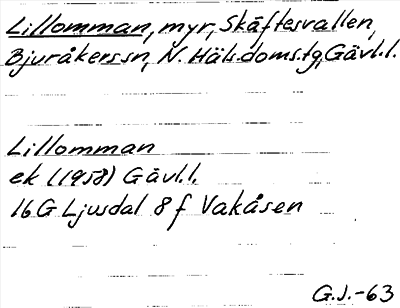 Lillomman, myr, Skäftesvallen,
Bjuråkerssn, N. Häls.doms.tg, Gävl.l.
Lillomman
ek (1958) Gävl.l.
16G Ljusdal 8f Vakåsen
G.J.-63